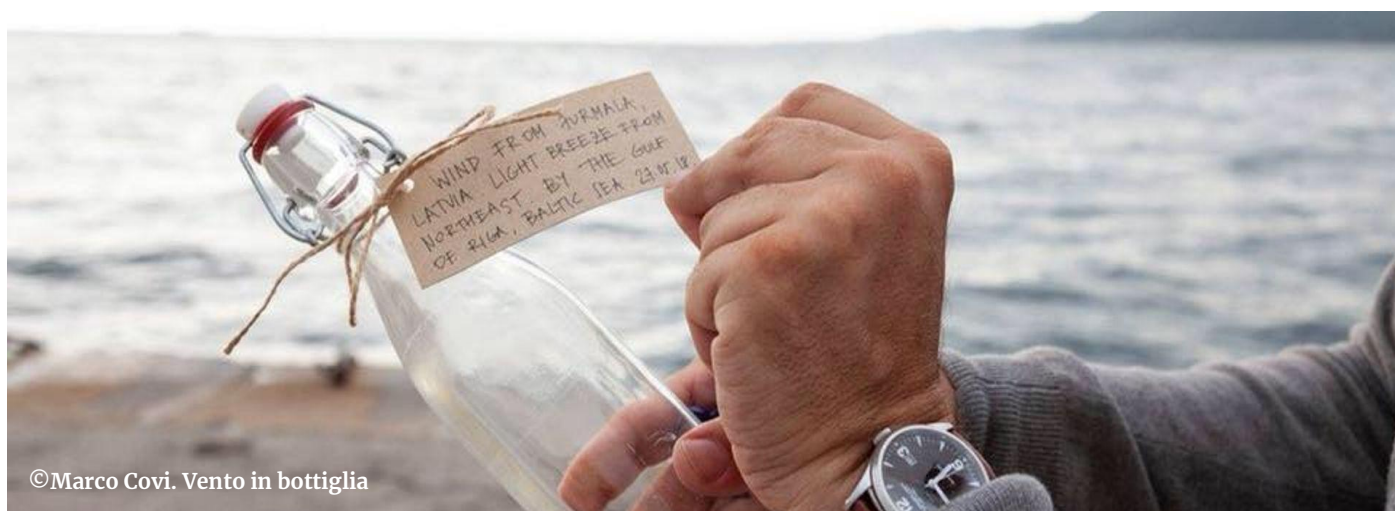 WIND FROM JURMALA,
LATVIA LIGHT BREEZE FROM
NORTHEAST BY THE GULF
OF RIGA, BALTIC SEA 27.05.18
©Marco Covi. Vento in bottiglia